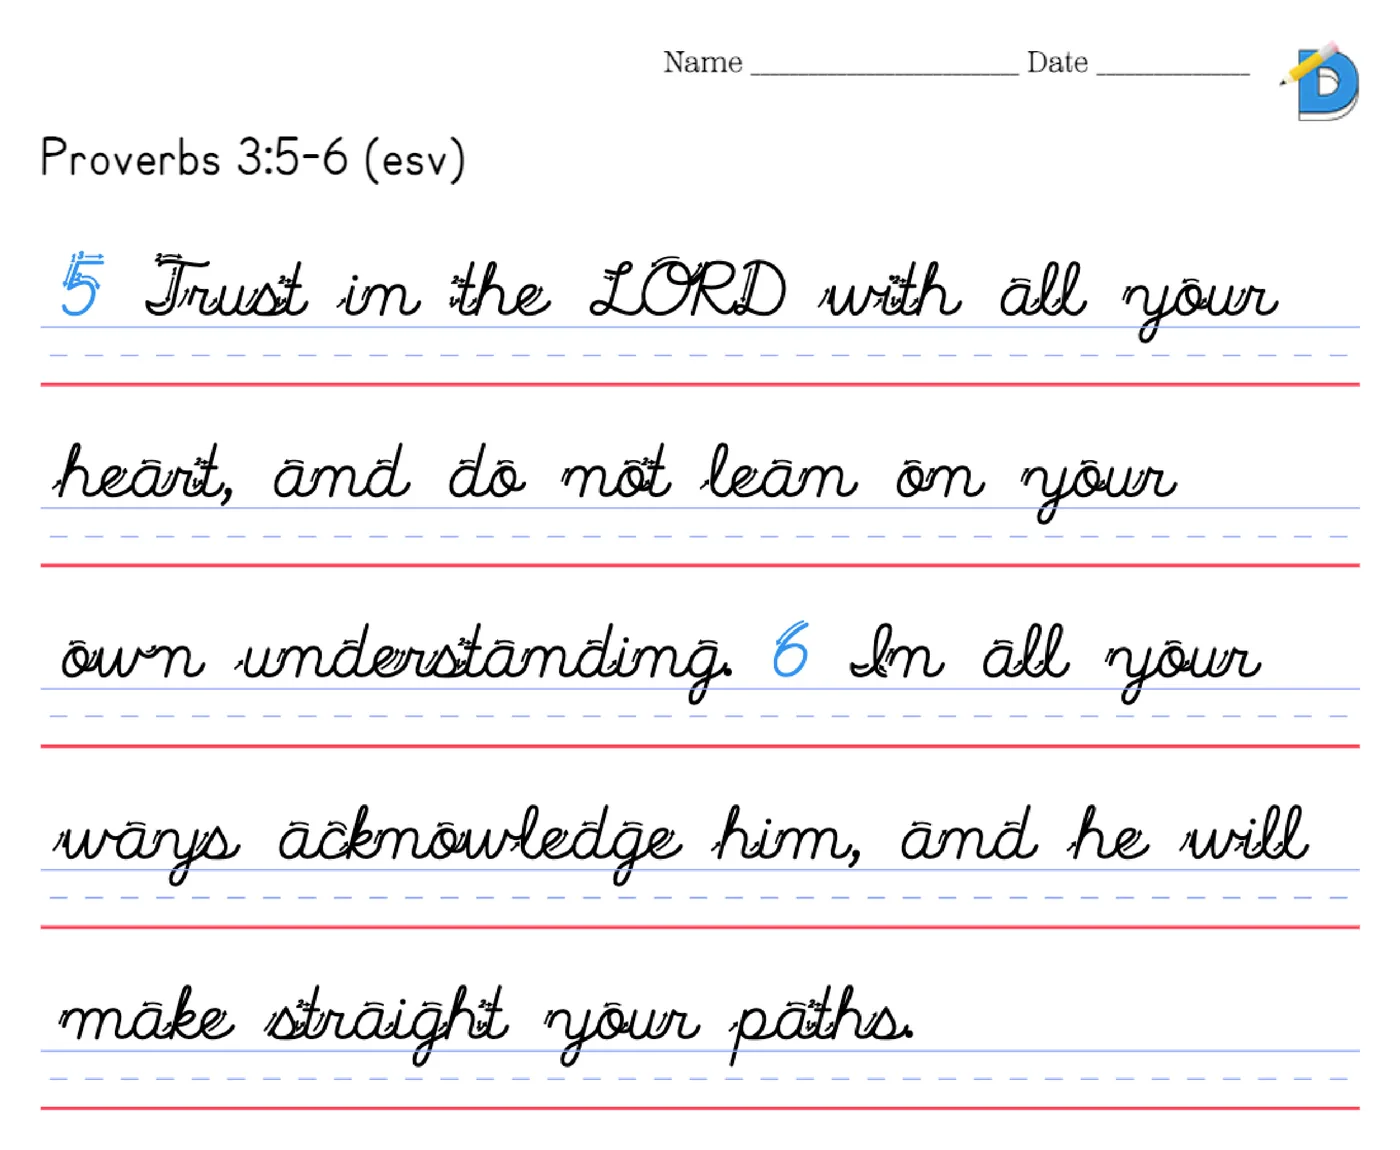 Name Date
Proverbs 3:5-6 (esv)
5 Trust in the LORD with all your
heart, and do not lean on your
own understanding. 6 In all your
ways acknowledge him, and he will
make straight your paths.